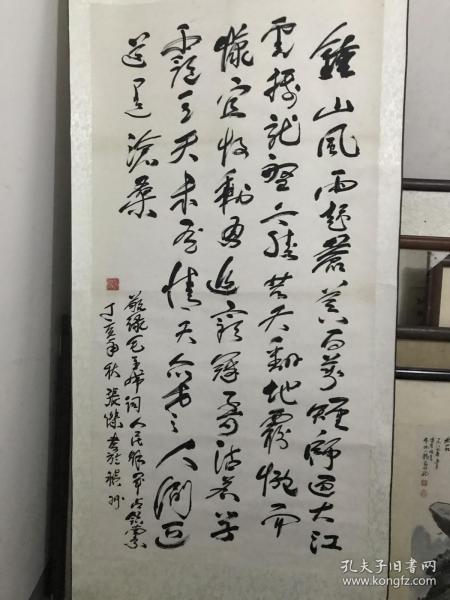 鍾山風雨起蒼黃百萬雄師過大江
虎踞龍盤今勝昔天翻地覆慨而
慷宜將剩勇追窮寇不可沽名學
霸王天若有情天亦老人間正
道是滄桑
敬録毛主席詞人民解放軍占領南京
丁亥年秋張傑書於
孔夫子旧书网
www.kongfz.com